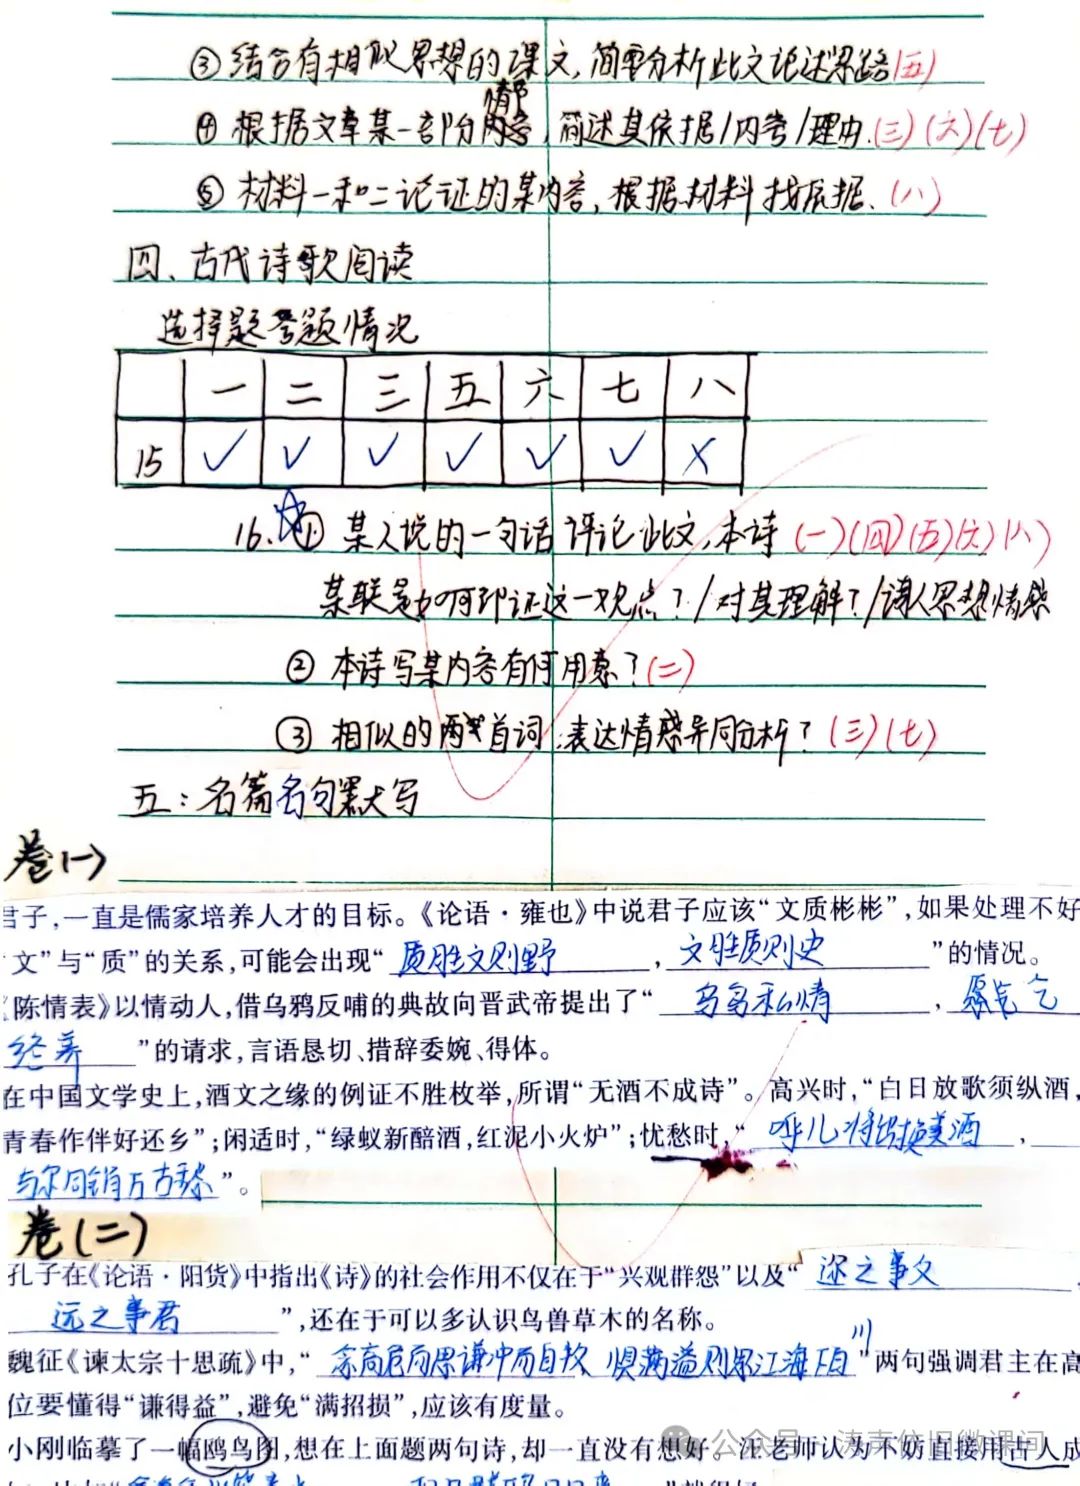 ③ 结合有相似思想的课文,简要分析此文论述思路(五)
情节
④ 根据文章某一部分内容,简述其依据/内容/理由.(三)(六)(七)
⑤ 材料一和二论证的某内容,根据材料找依据.(八)
四、古代诗歌阅读
选择题答题情况
一 二 三 五 六 七 八
15 ✓ ✓ ✓ ✓ ✓ ✓ ✗
16. ① 某人说的一句话评论此文,本诗(一)(四)(五)(六)(八)
某联是如何印证这一观点?/对其理解?/诗人思想情感
② 本诗写某内容有何用意?(二)
③ 相似的两首词,表达情感异同分析?(三)(七)
五:名篇名句默写
卷(一)
君子,一直是儒家培养人才的目标。《论语·雍也》中说君子应该“文质彬彬”,如果处理不好
“文”与“质”的关系,可能会出现“质胜文则野,文胜质则史”的情况。
《陈情表》以情动人,借乌鸦反哺的典故向晋武帝提出了“乌鸟私情,愿乞
终养”的请求,言语恳切、措辞委婉、得体。
在中国文学史上,酒文之缘的例证不胜枚举,所谓“无酒不成诗”。高兴时,“白日放歌须纵酒,
青春作伴好还乡”;闲适时,“绿蚁新醅酒,红泥小火炉”;忧愁时,“呼儿将出换美酒,
与尔同销万古愁”。
卷(二)
孔子在《论语·阳货》中指出《诗》的社会作用不仅在于“兴观群怨”以及“迩之事父
远之事君”,还在于可以多认识鸟兽草木的名称。
川
魏征《谏太宗十思疏》中,“念高危而思谦冲而自牧 惧满溢则思江海下百”两句强调君主在高
位要懂得“谦得益”,避免“满招损”,应该有度量。
小刚临摹了一幅鸥鸟图,想在上面题两句诗,却一直没有想好。汪老师认为不妨直接用古人成
公众号·涛声依旧微课间